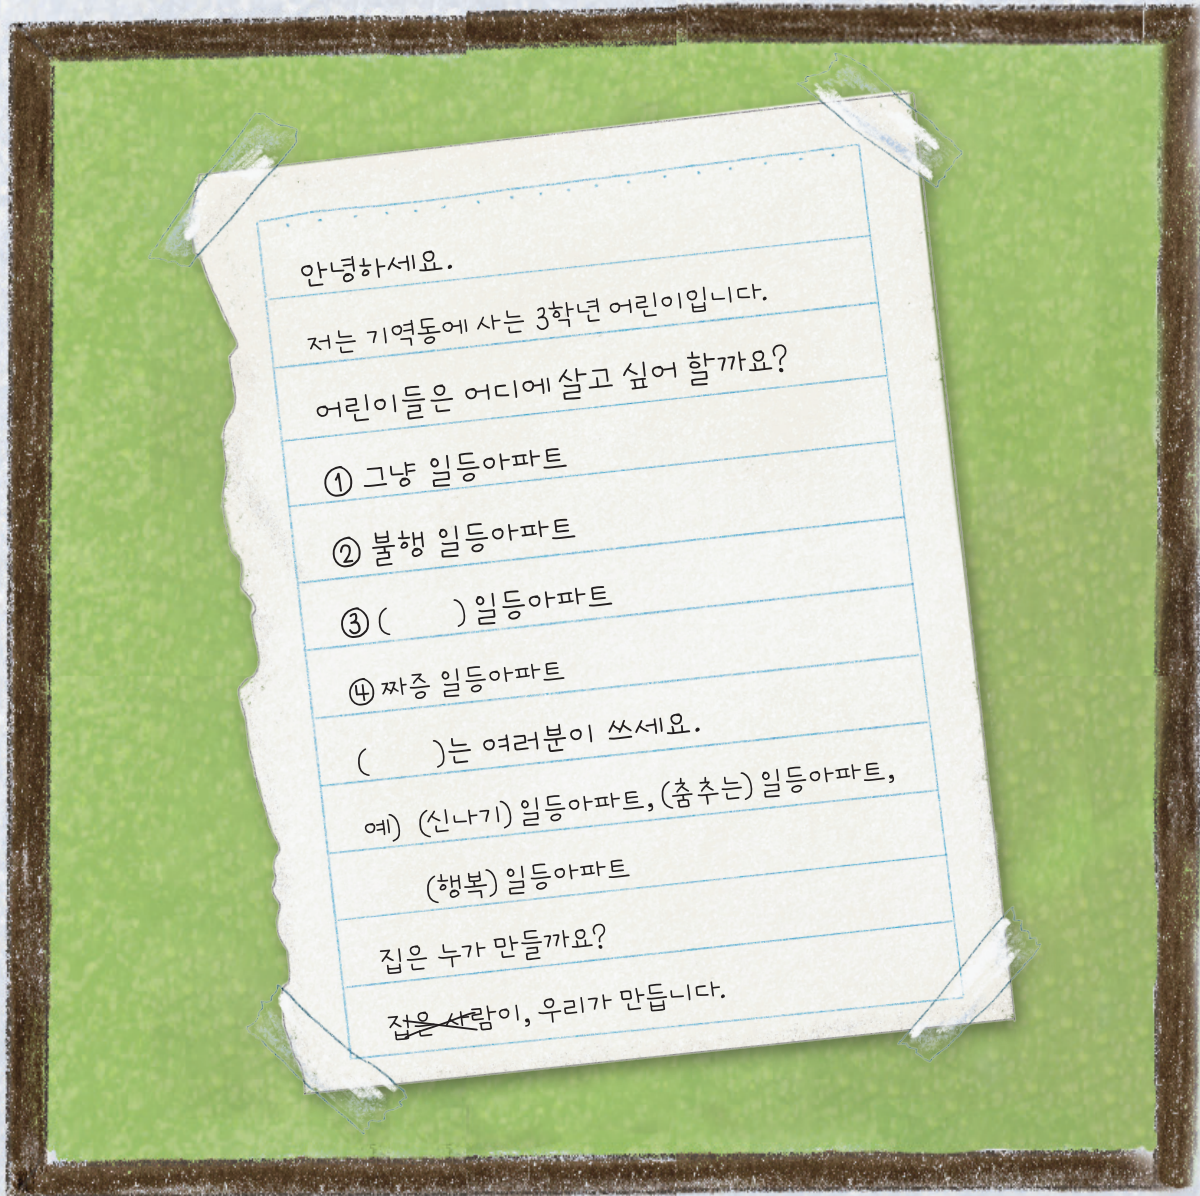 안녕하세요.
저는 기역동에 사는 3학년 어린이입니다.
어린이들은 어디에 살고 싶어 할까요?
① 그냥 일등아파트
② 불행 일등아파트
③ (      ) 일등아파트
④ 짜증 일등아파트
(      )는 여러분이 쓰세요.
예) (신나기) 일등아파트, (춤추는) 일등아파트,
(행복) 일등아파트
집은 누가 만들까요?
접은 사람이, 우리가 만듭니다.